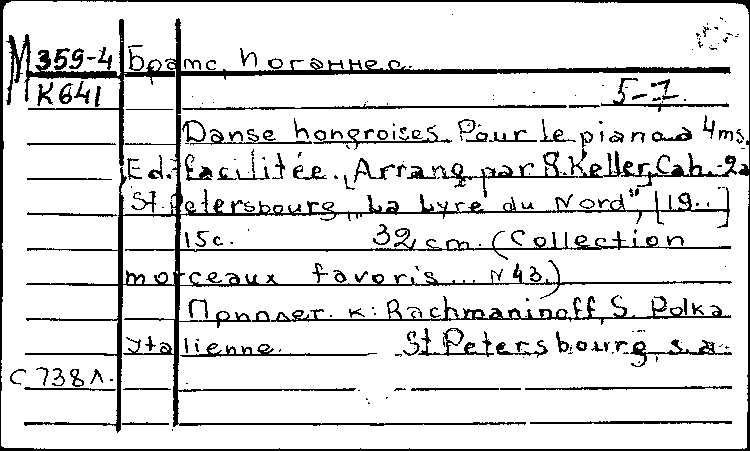 М 359-4 Брамс, Иоганнес.
К641
5-7
Danse hongroises. Pour le piano a 4ms.
Ed. facilitée. [Arrang par R. Keller] Cah. 2a
St. Petersbourg, "La Lyre du Nord", [19..]
15c. 32 cm. (Collection
morceaux favoris... N 43.)
Приплет. к: Rachmaninoff, S. Polka
Italienne. St. Petersbourg, s.a.
С 738л.